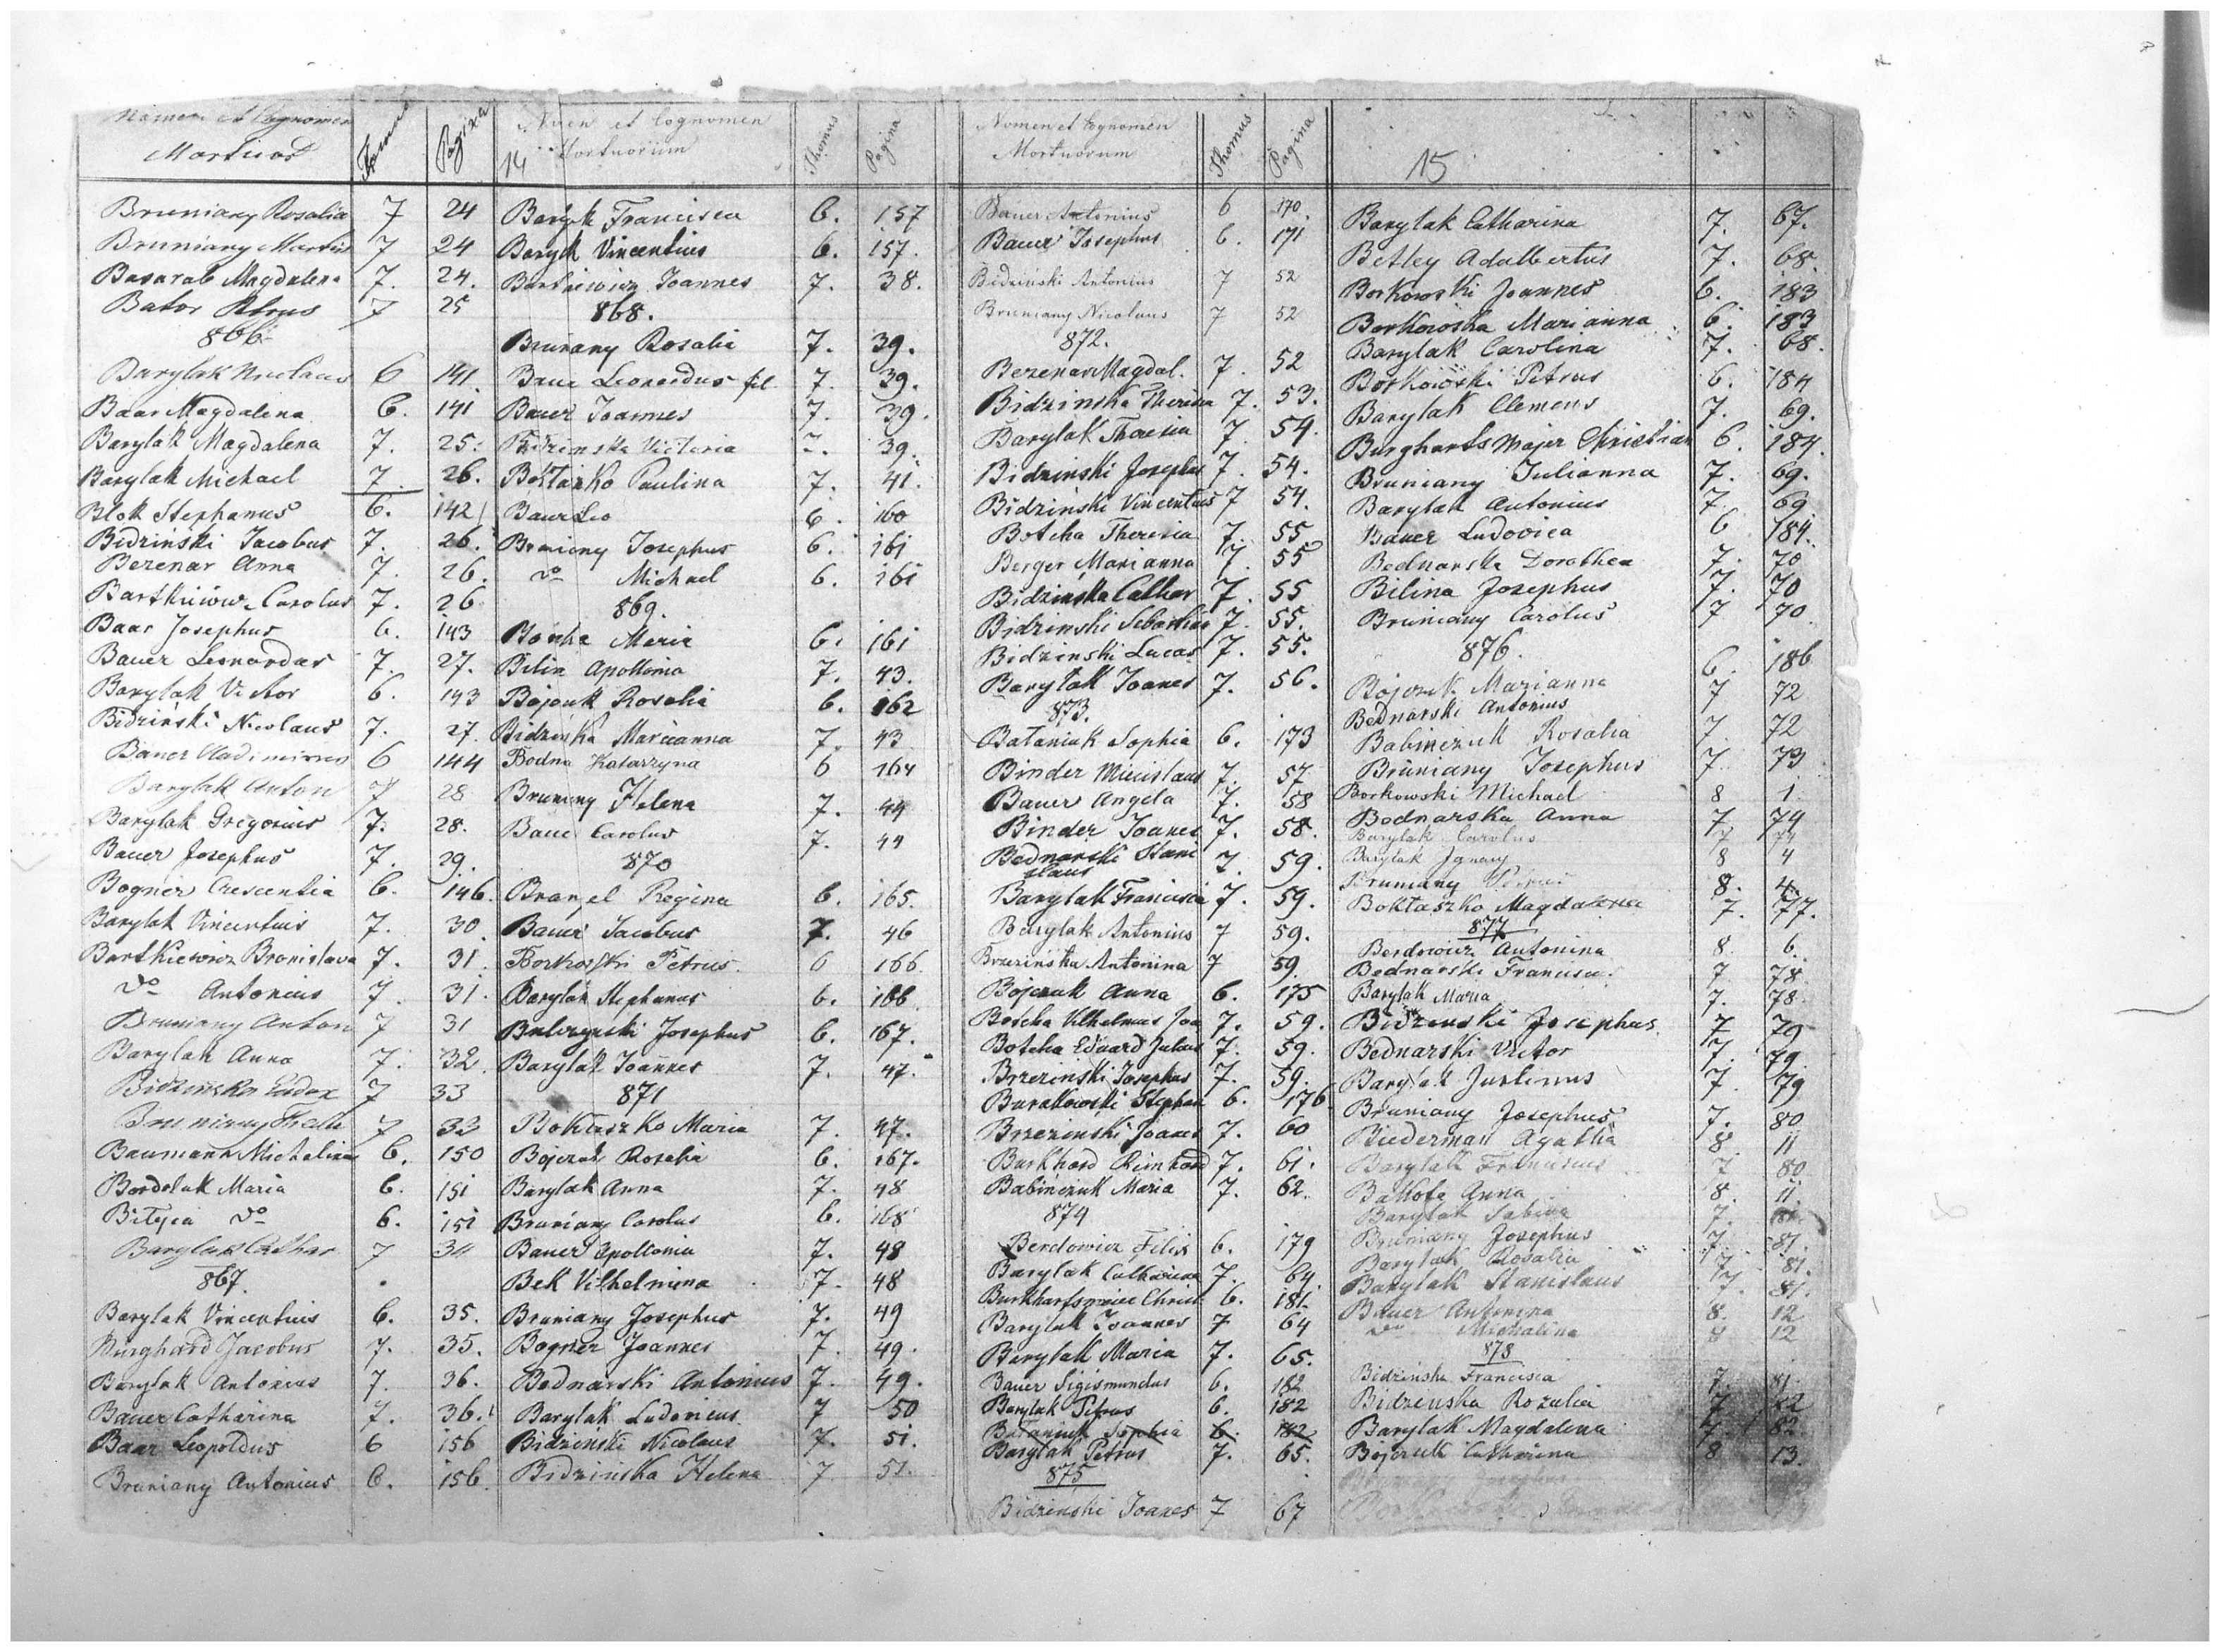 Nomen et Cognomen Mortuor Pagina
Bruniany Rosalia 7 24
Bruniany Martin 7 24
Basarab Magdalena 7. 24.
Bator Petrus 7 25
866.
Barylak Nicolaus 6 141.
Baar Magdalena 6. 141
Barylak Magdalena 7. 25.
Barylak Michael 7. 26.
Blok Stephanus 6. 142
Bidziński Jacobus 7. 26.
Bezenar Anna 7. 26.
Bartkiewi. Carolus 7. 26
Baar Josephus 6. 143
Bauer Leonardus 7. 27.
Barylak Victor 6. 143
Bidziński Nicolaus 7. 27.
Bauer Vladimirus 6 144
Barylak Anton 7 28
Barylak Gregorius 7. 28.
Bauer Josephus 7. 29.
Bogner Crescentia 6. 146.
Barylak Vincentius 7. 30.
Bartkiewicz Bronislava 7. 31.
do Antonius 7. 31.
Bruniany Anton 7 31
Barylak Anna 7. 32.
Bidzińska 7 33
Bruniany 7 33
Baumann Michelina 6. 150
Bordolak Maria 6. 151
do 6. 151
Barylak Cathar 7 34
867.
Barylak Vincentius 6. 35.
Burghard Jacobus 7. 35.
Barylak Antonius 7. 36.
Bauer Catharina 7. 36.
Baar Leopoldus 6 156
Bruniany Antonius 6. 156.
Nomen et Cognomen
14 Mortuorum Thomus Pagina
Baryk Francisca 6. 157
Baryk Vincentius 6. 157.
Bartkiewicz Joannes 7. 38.
868.
Bruniany Rosalia 7. 39.
Bauer Leonardus fil. 7. 39.
Bauer Joannes 7. 39.
Bidzinska Victoria 7. 39.
Boktaszko Paulina 7. 41.
Bauer Leo 6. 160
Bruniany Josephus 6. 161
do Michael 6. 161
869.
Maria 6. 161
Bilin Apollonia 7. 43.
Bojczuk Rosalia 6. 162
Bidzińska Marianna 7. 43
Bodna Katarzyna 6 164
Bruniany Helena 7. 44
Bauer Carolus 7. 44
870
Regina 6. 165.
Bauer Jacobus 7. 46
Borkowski Petrus 6 166.
Barylak Stephanus 6. 166
Josephus 6. 167.
Barylak Joannes 7. 47.
871
Boktaszko Maria 7. 47.
Bojczuk Rosalia 6. 167.
Barylak Anna 7. 48
Bruniany Carolus 6. 168
Bauer Apollonia 7. 48
Bek Vilhelmina 7. 48
Bruniany Josephus 7. 49
Bogner Joannes 7. 49.
Bednarski Antonius 7. 49.
Barylak Ludovicus 7 50
Bidziński Nicolaus 7. 51.
Bidzińska Helena 7 51.
Nomen et Cognomen
Mortuorum Thomus Pagina
Bauer Antonius 6 170.
Bauer Josephus 6. 171
Bidziński Antonius 7 52
Bruniany Nicolaus 7 52
872.
Bezenar Magdal. 7. 52
Bidzinska Theresia 7. 53.
Barylak Theresia 7. 54.
Bidzinski Josephus 7. 54.
Bidzinski Vincentius 7 54.
Botcha Theresia 7. 55
Berger Marianna 7. 55
Bidzinska Cathar 7. 55
Bidzinski Sebastian 7. 55.
Bidzinski Lucas 7. 55.
Barylak Joanes 7. 56.
873.
Bataniuk Sophia 6. 173
Binder Miecislaus 7. 57
Bauer Angela 7. 58
Binder Joanes 7. 58.
Bednarski Stani
slaus 7. 59.
Barylak Francisca 7. 59.
Barylak Antonius 7 59.
Brzezińska Antonina 7 59.
Bojczuk Anna 6. 175
Botcha Vilhelmus Joa 7. 59.
Botcha Eduard Julius 7. 59.
Brzezinski Josephus 7. 59.
Burakowski Stephan 6. 176
Brzezinski Joanes 7. 60
Burkhard Reinhard 7. 61.
Babińczuk Maria 7. 62.
874
Berdowicz Felix 6. 179
Barylak Catharina 7. 64.
Christ 6. 181.
Barylak Joannes 7 64
Barylak Maria 7. 65.
Bauer Sigismundus 6. 182
Barylak Petrus 6. 182
Bataniuk Sophia 6. 182
Barylak Petrus 7. 65.
875
Bidzinski Joanes 7 67
15
Barylak Catharina 7. 67.
Betley Adalbertus 7. 68.
Borkowski Joannes 6. 183
Borkowska Marianna 6. 183
Barylak Carolina 7. 68.
Borkowski Petrus 6. 184
Barylak Clemens 7. 69.
Burghardsmajer Christian 6. 184.
Bruniany Julianna 7. 69.
Barylak Antonius 7 69
Bauer Ludovica 6 184.
Bednarska Dorothea 7. 70
Bilina Josephus 7. 70
Bruniany Carolus 7 70.
876.
Bojczuk Marianna 6. 186
Bednarski Antonius 7 72
Babinczuk Rosalia 7. 72
Bruniany Josephus 7 73
Borkowski Michael 8 1.
Bednarska Anna 7 74
Barylak Carolus 7 74
Barylak Ignacy 8 4
Bruniany 8. 4.
Boktaszko Magdalena 7. 77.
877
Berdowicz Antonina 8. 6.
Bednarski Francisc. 7 78.
Barylak Maria 7. 78
Bidzinski Josephus 7 79
Bednarski Victor 7. 79
Barylak Justinus 7. 79
Bruniany Josephus 7. 80
Biederman Agatha 8. 11
Barylak Franciscus 7 80.
Bakofa Anna 8. 11.
Barylak Sabina 7. 81.
Bruniany Josephus 7. 81.
Barylak Rosalia 7 81.
Barylak Stanislaus 7. 81.
Bauer Antonina 8. 12
do Michalina 8 12
878
Bidzinska Francisca 7. 81.
Bidzenska Rozalia 7 82
Barylak Magdalena 7. 82
Bojczuk Catharina 8 13.